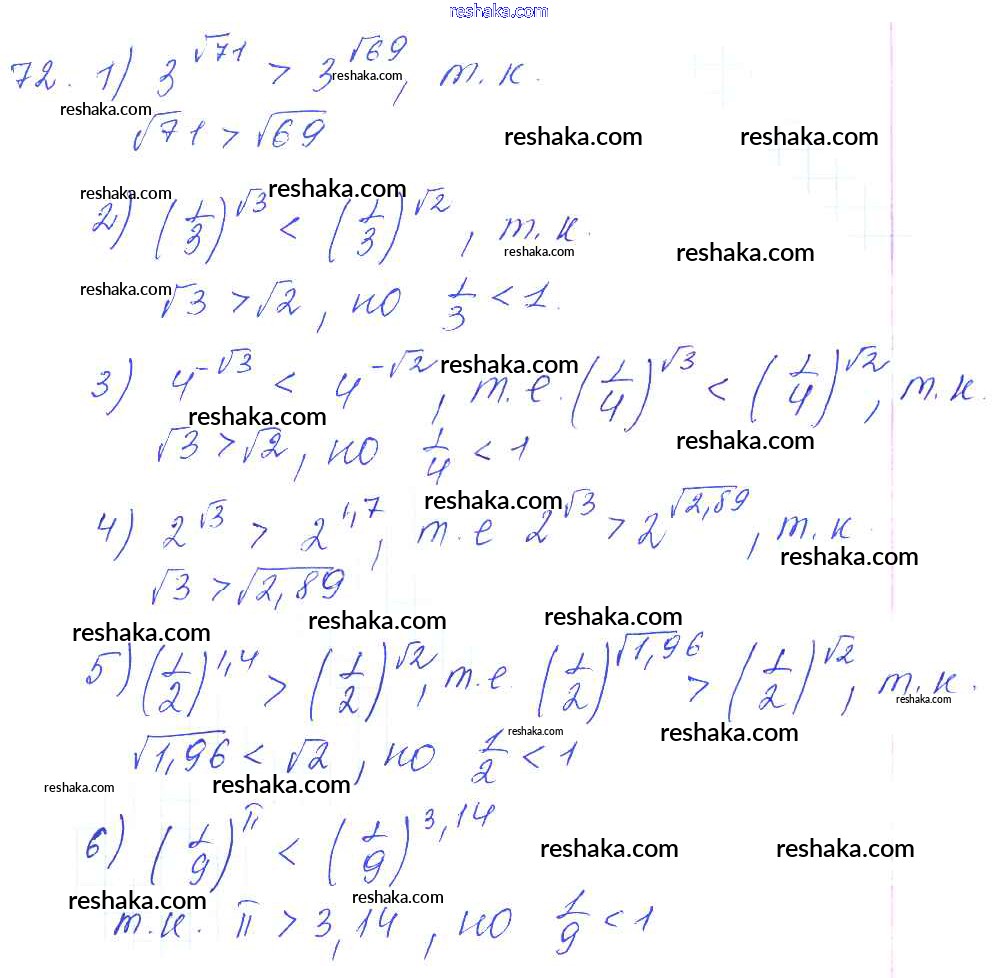 reshaka.com
72. 1) 3^√71 > 3^√69, т.к.
reshaka.com
reshaka.com
√71 > √69
reshaka.com reshaka.com
reshaka.com reshaka.com
2) (1/3)^√3 < (1/3)^√2, т.к.
reshaka.com
reshaka.com
reshaka.com
√3 > √2, но 1/3 < 1.
reshaka.com
3) 4^-√3 < 4^-√2, т.е. (1/4)^√3 < (1/4)^√2, т.к.
reshaka.com
reshaka.com
√3 > √2, но 1/4 < 1
reshaka.com
4) 2^√3 > 2^1,7, т.е 2^√3 > 2^√2,89, т.к.
reshaka.com
√3 > √2,89
reshaka.com reshaka.com reshaka.com
5) (1/2)^1,4 > (1/2)^√2, т.е. (1/2)^√1,96 > (1/2)^√2, т.к.
reshaka.com
reshaka.com reshaka.com
√1,96 < √2, но 1/2 < 1
reshaka.com reshaka.com
6) (1/9)^π < (1/9)^3,14
reshaka.com reshaka.com
reshaka.com reshaka.com
т.к. π > 3,14, но 1/9 < 1